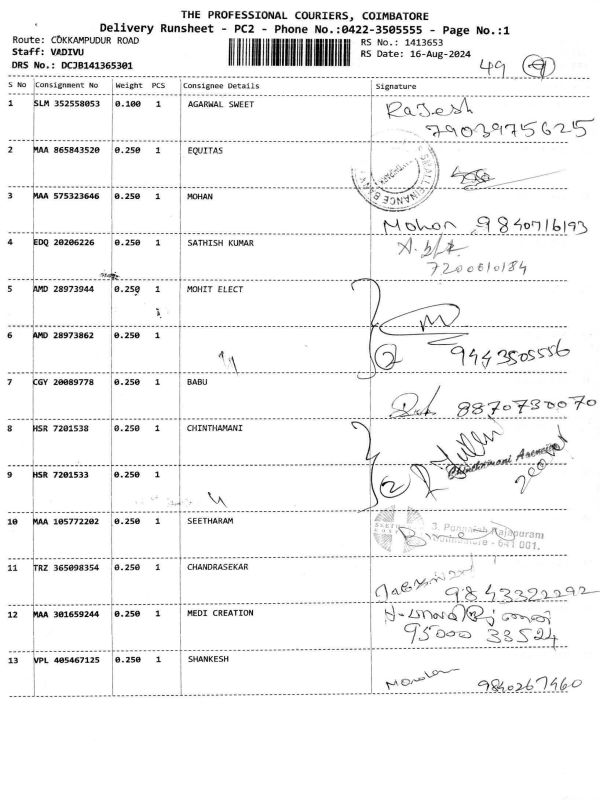 THE PROFESSIONAL COURIERS, COIMBATORE
Delivery Runsheet - PC2 - Phone No.:0422-3505555 - Page No.:1
Route: COKKAMPUDUR ROAD
RS No.: 1413653
Staff: VADIVU
RS Date: 16-Aug-2024
DRS No.: DCJB141365301
49
S No Consignment No Weight PCS Consignee Details Signature
1 SLM 352558053 0.100 1 AGARWAL SWEET Rajesh
7903975625
2 MAA 865843520 0.250 1 EQUITAS
SMALL FINANCE BANK
3 MAA 575323646 0.250 1 MOHAN
Mohan 9840716193
4 EDQ 20206226 0.250 1 SATHISH KUMAR
7200610184
5 AMD 28973944 0.250 1 MOHIT ELECT
6 AMD 28973862 0.250 1
2 9443505556
7 CGY 20089778 0.250 1 BABU
8870730070
8 HSR 7201538 0.250 1 CHINTHAMANI
Chinthamani
9 HSR 7201533 0.250 1
2
10 MAA 105772202 0.250 1 SEETHARAM
3. Rajapuram
Coimbatore - 641 001.
11 TRZ 365098354 0.250 1 CHANDRASEKAR
9843322292
12 MAA 301659244 0.250 1 MEDI CREATION
95000 33524
13 VPL 405467125 0.250 1 SHANKESH
9840267460